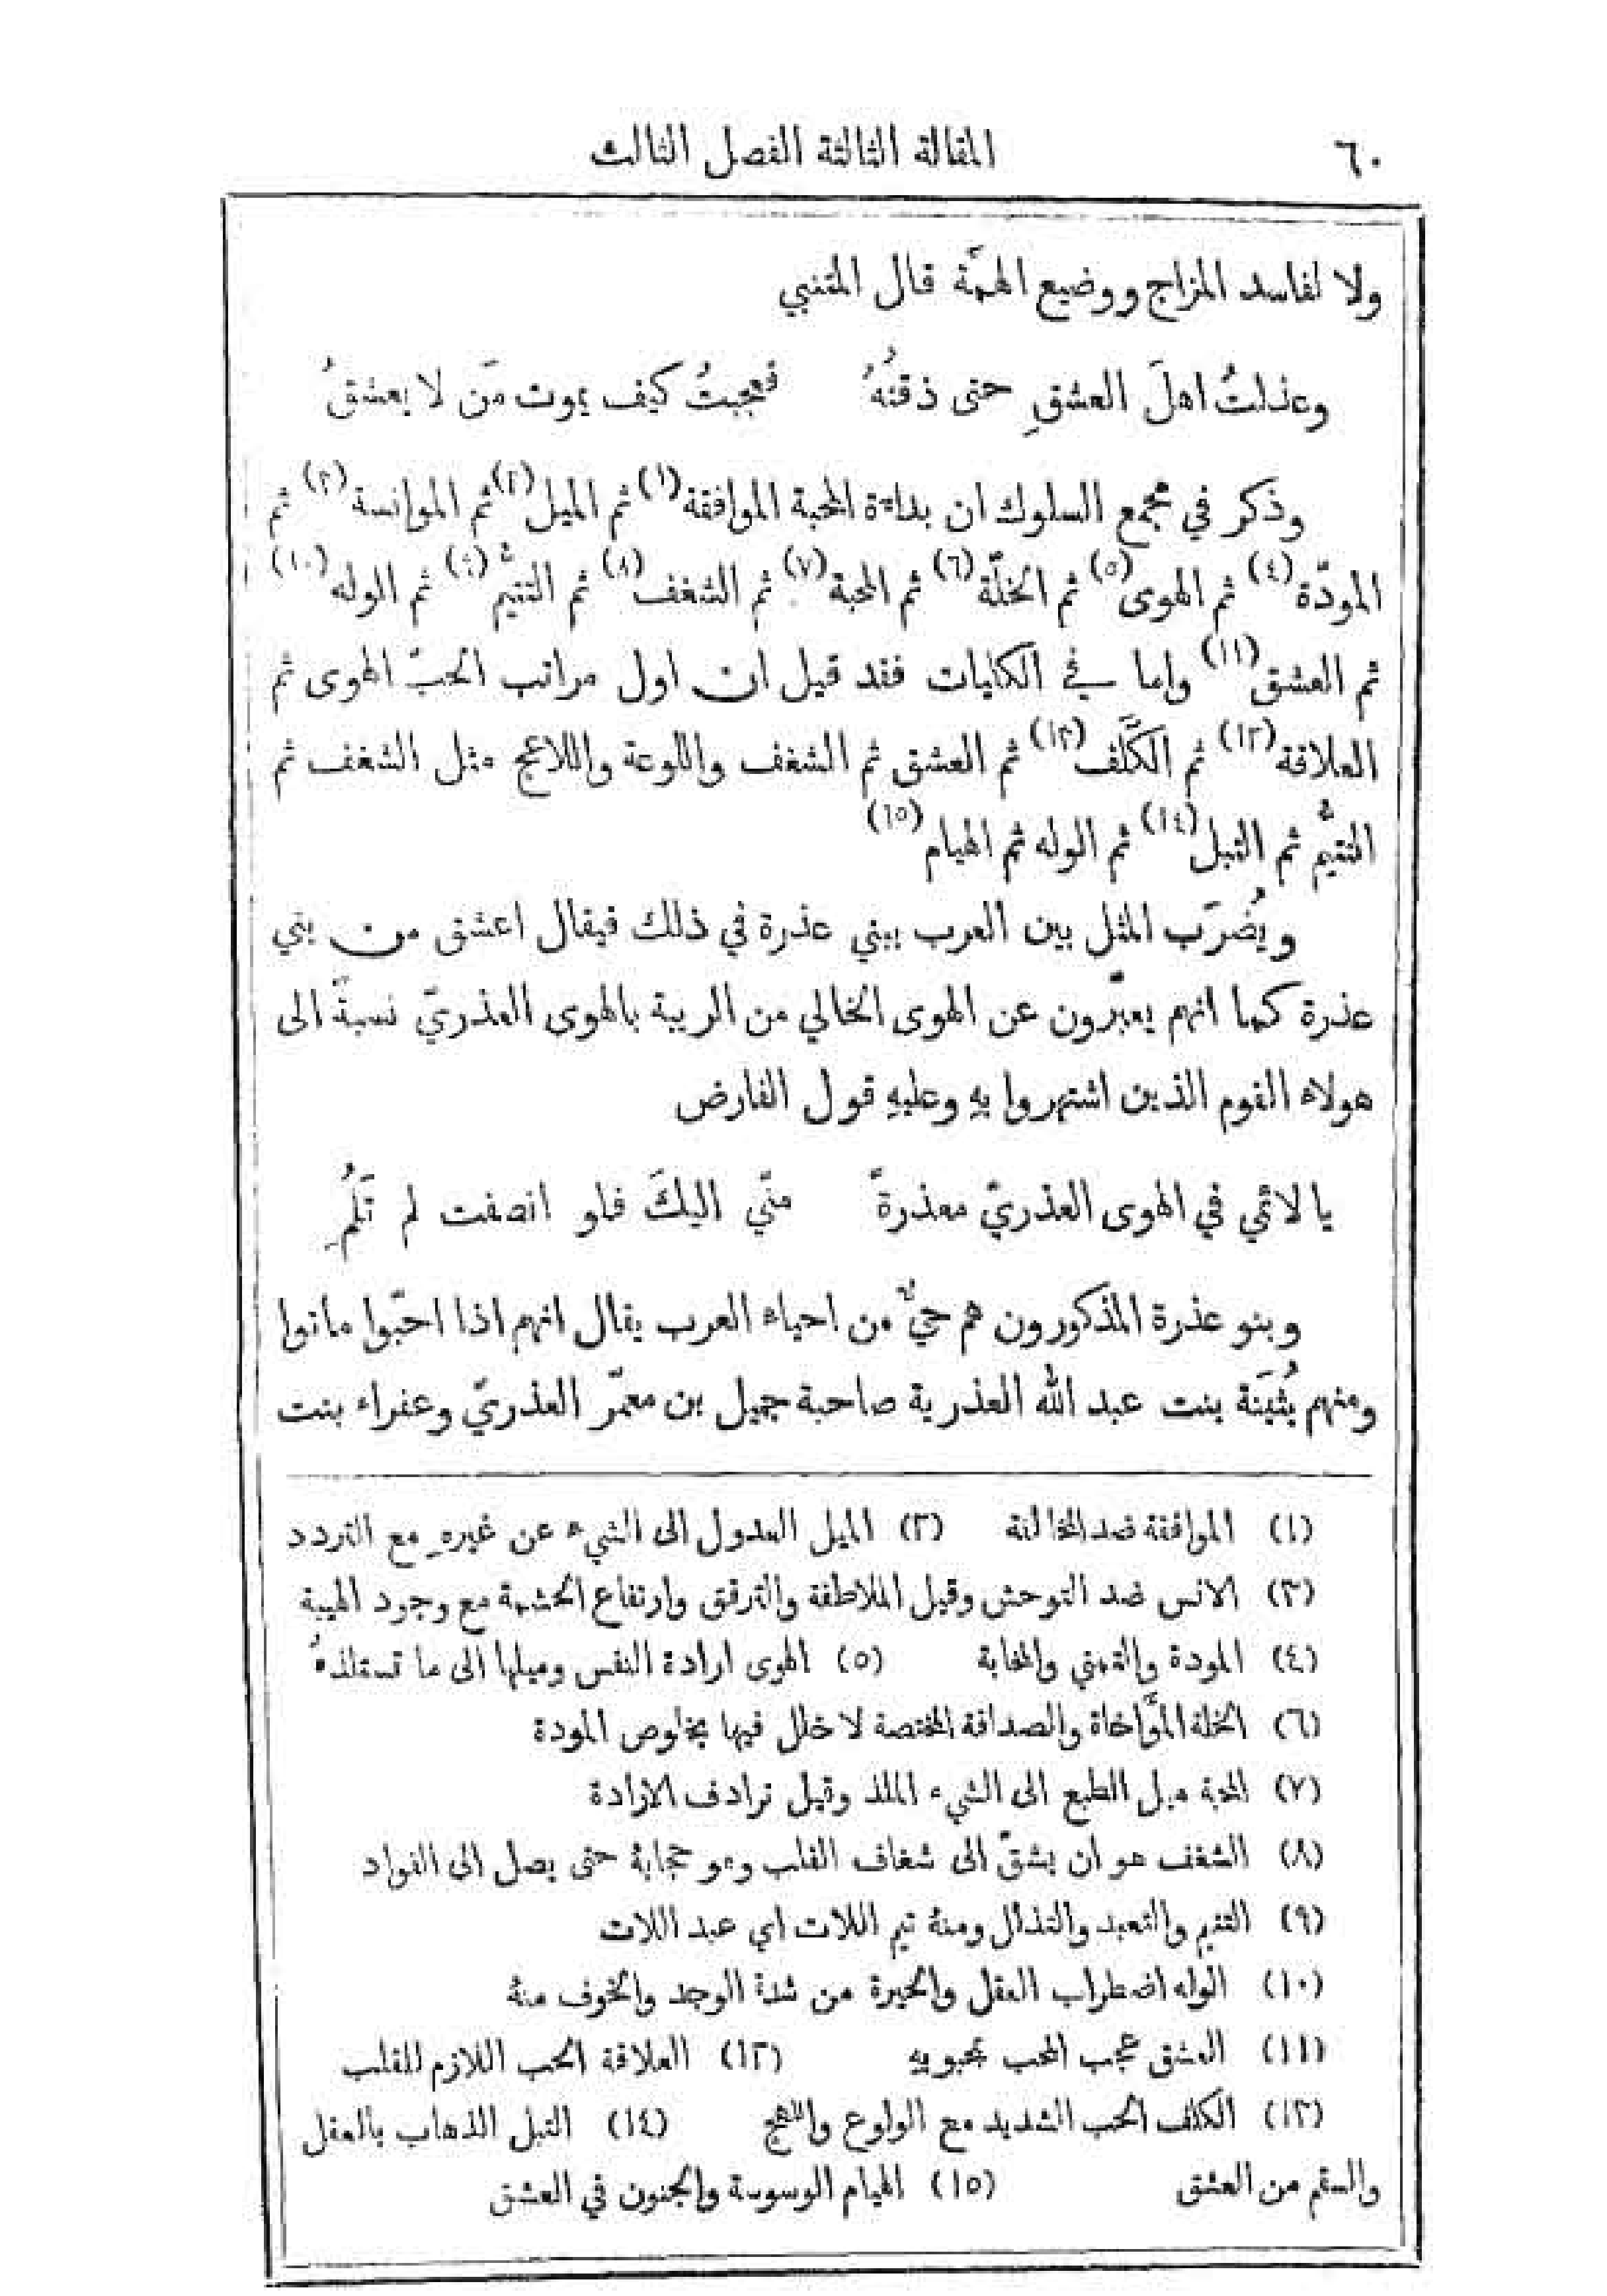 ٦٠ المقالة الثالثة الفصل الثالث
ولا لفاسد المزاج ووضيع الهمَّة قال المتنبي
وعذلتُ اهلَ العشقِ حتى ذقتُهُ فعجبتُ كيف يموت مَن لا يعشقُ
وذكر في مجمع السلوك ان بداءة المحبة الموافقة (١) ثم الميل (٢) ثم الموانسة (٣) ثم
المودّة (٤) ثم الهوى (٥) ثم الخلّة (٦) ثم المحبة (٧) ثم الشغف (٨) ثم التتيُّم (٩) ثم الوله (١٠)
ثم العشق (١١) واما في الكليات فقد قيل ان اول مراتب الحبّ الهوى ثم
العلاقة (١٢) ثم الكَلَف (١٣) ثم العشق ثم الشغف واللوعة واللاعج مثل الشغف ثم
التتيُّم ثم التبل (١٤) ثم الوله ثم الهيام (١٥)
ويُضرَب المثل بين العرب ببني عذرة في ذلك فيقال اعشق من بني
عذرة كما انهم يعبّرون عن الهوى الخالي من الريبة بالهوى العذريّ نسبةً الى
هولاء القوم الذين اشتهروا بهِ وعليهِ قول الفارض
يا لائمي في الهوى العذريّ معذرةً منّي اليكَ فلو انصفت لم تَلُمِ
وبنو عذرة المذكورون هم حيٌّ من احياء العرب يقال انهم اذا احبّوا ماتوا
ومنهم بُثَينَة بنت عبد الله العذرية صاحبة جميل بن معمّر العذريّ وعفراء بنت
(١) الموافقة ضد المخالفة (٢) الميل العدول الى الشيء عن غيرهِ مع التردد
(٣) الانس ضد التوحش وقيل الملاطفة والترفق وارتفاع الحشمة مع وجود الهيبة
(٤) المودة والتمني والمحابة (٥) الهوى ارادة النفس وميلها الى ما تستلذهُ
(٦) الخلة المؤَاخاة والصداقة المختصة لا خلل فيها بخلوص المودة
(٧) المحبة ميل الطبع الى الشيء الملذ وقيل ترادف الارادة
(٨) الشغف هو ان يشقّ الى شغاف القلب وهو حجابهُ حتى يصل الى الفواد
(٩) التتيم والتعبد والتذلل ومنهُ تيم اللات اي عبد اللات
(١٠) الوله اضطراب العقل والحيرة من شدة الوجد والخوف منهُ
(١١) العشق عجب المحب بمحبوبهِ (١٢) العلاقة الحب اللازم للقلب
(١٣) الكلف الحب الشديد مع الولوع واللهج (١٤) التبل الذهاب بالعقل
والسقم من العشق (١٥) الهيام الوسوسة والجنون في العشق